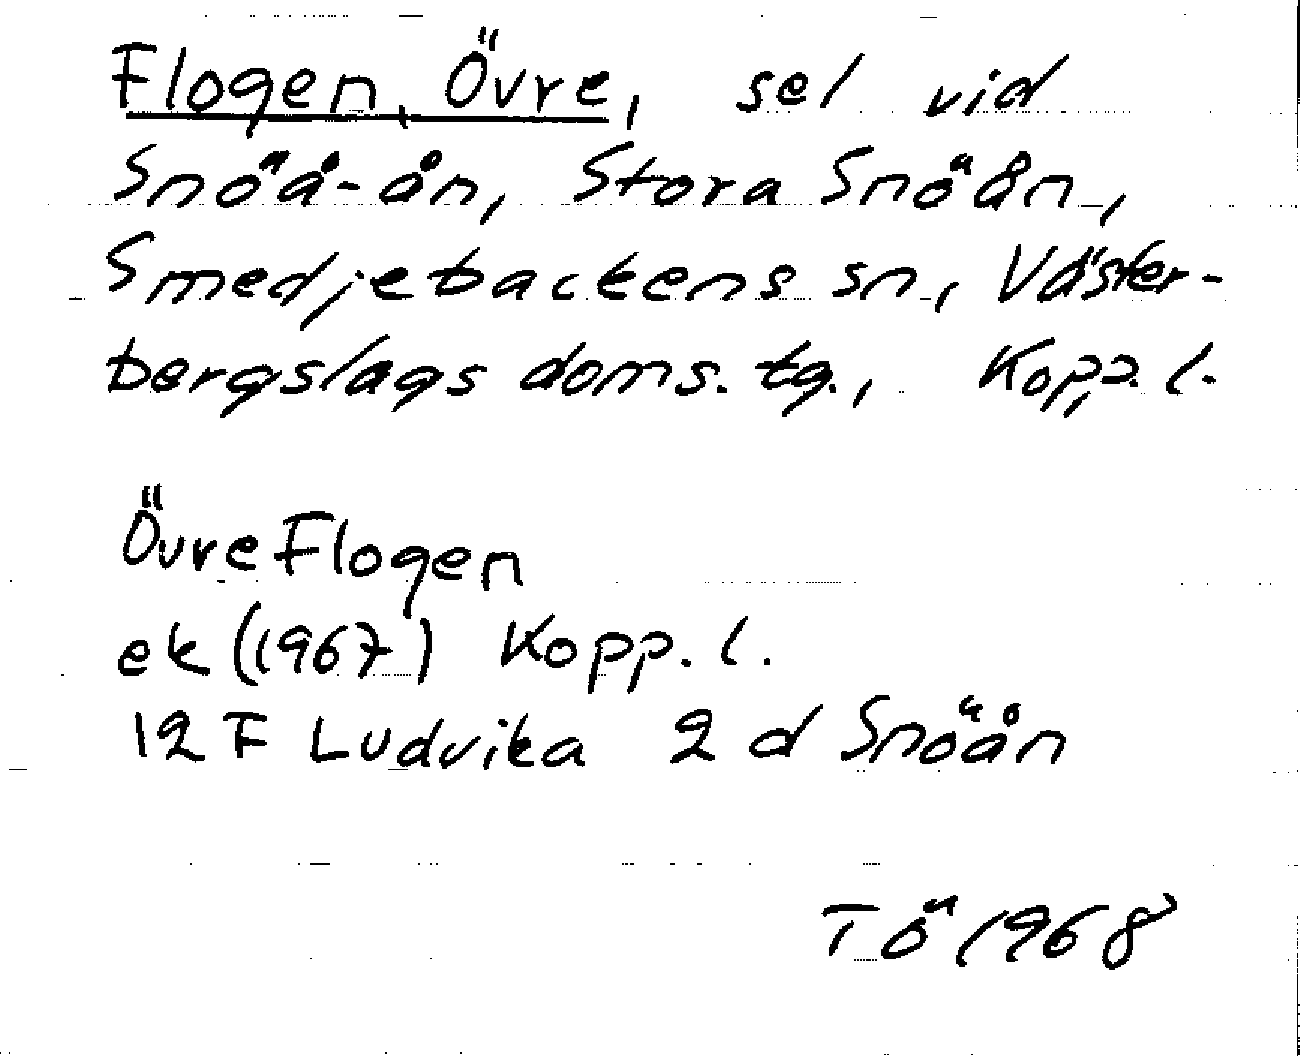 Flogen, Övre, sel vid
Snöå-ån, Stora Snöån,
Smedjebackens sn, Väster-
bergslags doms. tg., Kopp. l.
Övre Flogen
ek (1967) Kopp. l.
12 F Ludvika 2 d Snöån
TÖ 1968